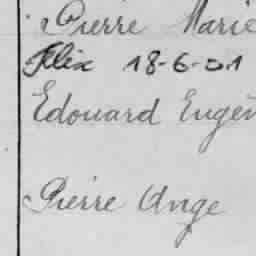 Pierre Marie
Félix 18-6-01
Edouard Eugèn
Pierre Ange